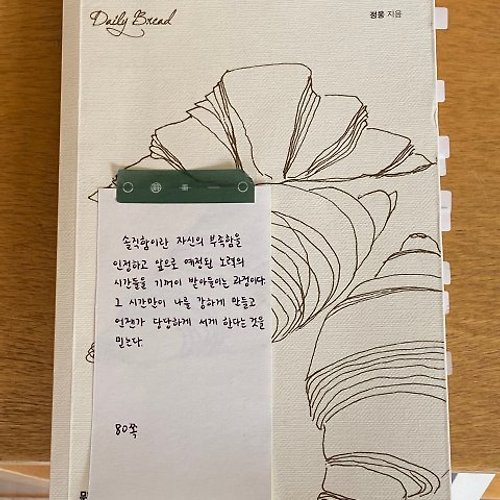 Daily Bread
정웅 지음
솔직함이란 자신의 부족함을
인정하고 앞으로 예정된 노력의
시간들을 기꺼이 받아들이는 과정이다.
그 시간만이 나를 강하게 만들고
언젠가 당당하게 서게 한다는 것을
믿는다.
80쪽